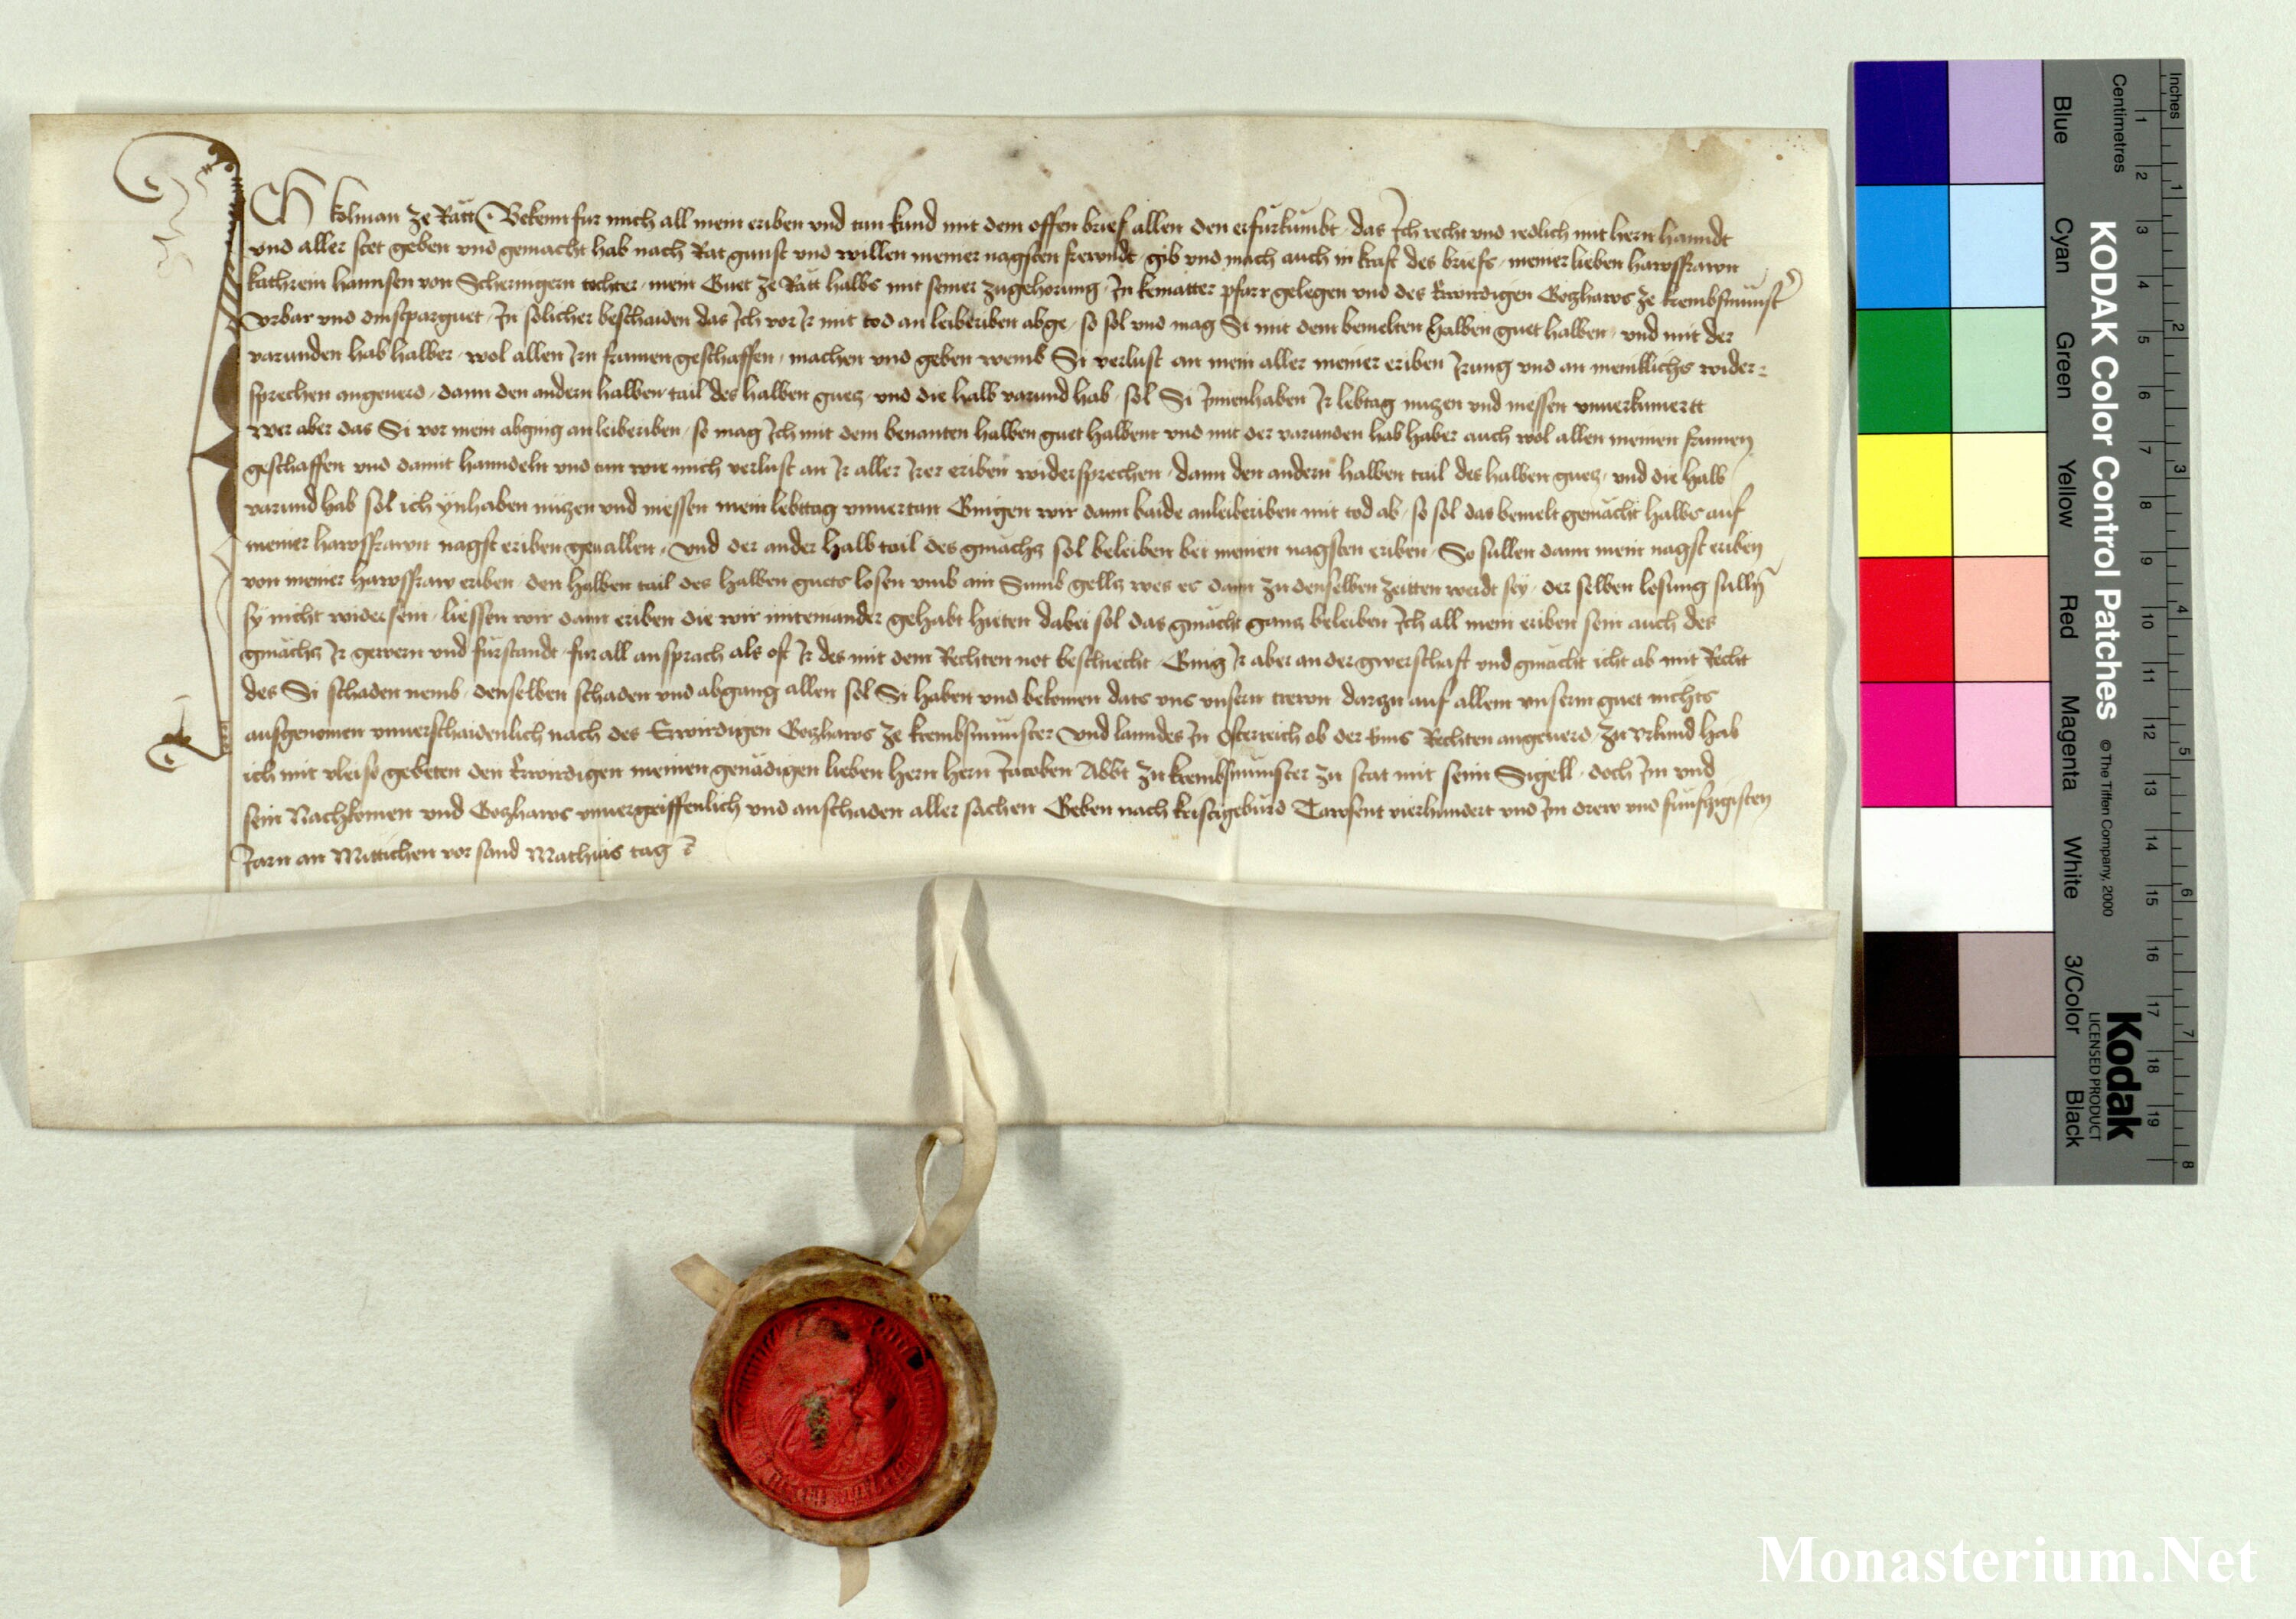 Ich kolman ze Rätt Bekenn fur mich all mein eriben vnd tun kund mit dem offen brief allen den er furkumbt das Ich recht vnd redlich mit hern hanndt
vnd aller stet geben vnd gemacht hab nach Rat gunst vnd willen meiner nagsten frewndt gib vnd mach auch in kraft des briefs meiner lieben hawsfrawn
kathrein hannsen von Scheringern tochter mein Guet ze Rätt halbs mit seiner zugehorung In kematter pfarr gelegen vnd des Erwirdigen Gozhaws ze krembsmunster
vrbar vnd dinstparguet In solicher beschaiden das Ich vor Ir mit tod an leiberiben abge so sol vnd mag Si mit dem bemelten halben guet halben vnd mit der
varunden hab halber wol allen Irn frumen geschaffen machen vnd geben wemb Si verlust an mein aller meiner eriben Irung vnd an meniklichs wider-
sprechen angeuerd dann den andern halben tail des halben guez vnd die halb varund hab sol Si Innenhaben Ir lebtag nuzen vnd niessen vnuerkumertt
wer aber das Si vor mein abging an leiberiben so mag Ich mit dem benanten halben guet halbem vnd mit der varunden hab halber auch wol allen meinen frumen
geschaffen vnd damit hanndeln vnd tun wie mich verlust an Ir aller Irer eriben widersprechen dann den andern halben tail des halben guez vnd die halb
varund hab sol ich ynhaben nüzen vnd niessen mein lebttag vnuertan Gingen wir dann baide anleiberiben mit tod ab so sol das bemelt gemächt halbs auf
meiner hawsfrawn nagst eriben geuallen vnd der ander halb tail des gmächs sol beleiben bei meinen nagsten eriben So sullen dann mein nagst eriben
von meiner hawsfraw eriben den halben tail des halben guets losen vmb ain Sumb gellz wes es dann zu denselben zeitten werdt sey der selben losung sulln
sy nicht wider sein liessen wir dann eriben die wir miteinander gehabt hieten dabei sol das gmächt ganz beleiben Ich all mein eriben sein auch des
gmächs Ir gewern vnd fürstandt fur all ansprach als oft Ir des mit dem Rechten not beschiecht Ging Ir aber an der gwerschaft vnd gmächt icht ab mit Recht
des Si schaden nemb denselben schaden vnd abgang allen sol Si haben vnd bekomen dats vns vnsern trewn darzu auf allem vnserm guet nichts
ausgenomen vnuerschaidenlich nach des Erwirdigen Gozhaws ze krembsmunster vnd lanndes In Osterreich ob der Enns Rechten angeuerd Zu vrkund hab
ich mit vleiss gebeten den Erwirdigen meinen genädigen lieben hern hern Jacoben Abbt zu krembsmunster zu stat mit seim Sigell doch Im vnd
sein Nachkomen vnd Gozhaws vnuergriffenlich vnd anschaden aller sachen Geben nach kristigeburd Tawsent vierhundert vnd Im drew vnd funfzigisten
Jarn an Mittichen vor sand Mathias tag
KODAK Color Control Patches
© The Tiffen Company, 2000
Kodak
LICENSED PRODUCT
Blue
Cyan
Green
Yellow
Red
Magenta
White
3/Color
Black
Inches
1 2 3 4 5 6 7 8
Centimetres
1 2 3 4 5 6 7 8 9 10 11 12 13 14 15 16 17 18 19
Monasterium.Net